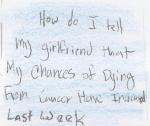 How do I tell
my girlfriend that
My chances of Dying
From Cancer Have Increased
Last Week